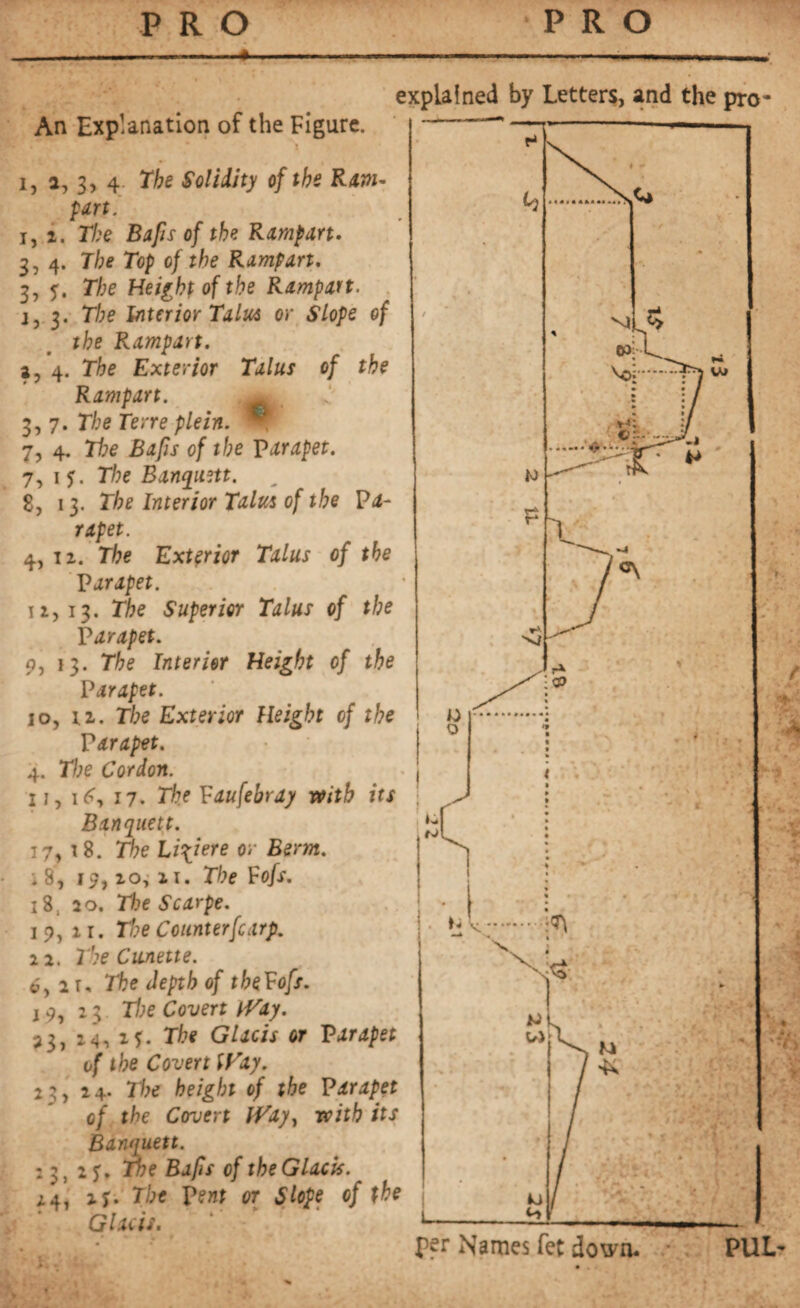 PRO PRO
explained by Letters, and the pro-
An Explanation of the Figure.
1, 2, 3, 4 The Solidity of the Ram-
part.
1, 2. The Basis of the Rampart.
3, 4. The Top of the Rampart.
3, 5. The Height of the Rampart.
1, 3. The Interior Talus or Slope of
the Rampart.
2, 4. The Exterior Talus of the
Rampart.
3, 7. The Terre plein.
7, 4. The Basis of the Parapet.
7, 15. The Banquett.
8, 13. The Interior Talus of the Pa-
rapet.
4, 12. The Exterior Talus of the
Parapet.
12, 13. The Superior Talus of the
Parapet.
9, 13. The Interior Height of the
Parapet.
10, 12. The Exterior Height of the
Parapet.
4. The Cordon.
11, 16, 17. The Fausebray with its
Banquett.
17, 18. The Liziere or Berm.
18, 19, 20, 21. The Foss.
18, 20. The Scarpe.
19, 21. The Counterscarp.
22. The Cunette.
6, 21. The depth of the Foss.
19, 23 The Covert Way.
23, 24, 25. The Glacis or Parapet
of the Covert Way.
23, 24. The height of the Parapet
of the Covert Way, with its
Banquett.
23, 25. The Basis of the Glacis.
24, 25. The Pent or Slope of the
Glacis.
1
5
3
7
15
8
9
13
10
12
4
2
11
16
17
18
20
22
21
6
19
23
24
25
per Names set down. PUL-